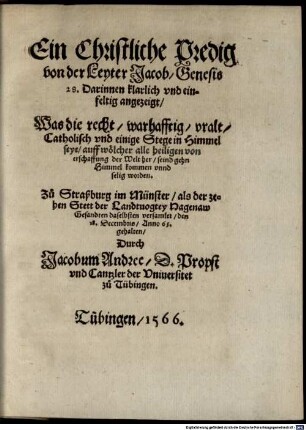 Ein Christliche Predig
von der Leyter Jacob/ Genesis
28. Darinnen klarlich vnd ein-
feltig angezeigt/
Was die recht/ warhafftig/ vralt/
Catholisch vnd einige Stege in Himmel
seye/ auff wölcher alle heiligen von
erschaffung der Welt her/ seind gehn
Himmel kommen vnnd
selig worden.
Zů Straßburg im Münster/ als der ze-
hen Stett der Landtuogtey Hagenaw
Gesandten daselbsten versamlet/ den
18. Decembris/ Anno 65.
gehalten/
Durch
Jacobum Andree/ D. Propst
vnd Cantzler der Vniuersitet
zů Tübingen.
Tübingen/ 1566.